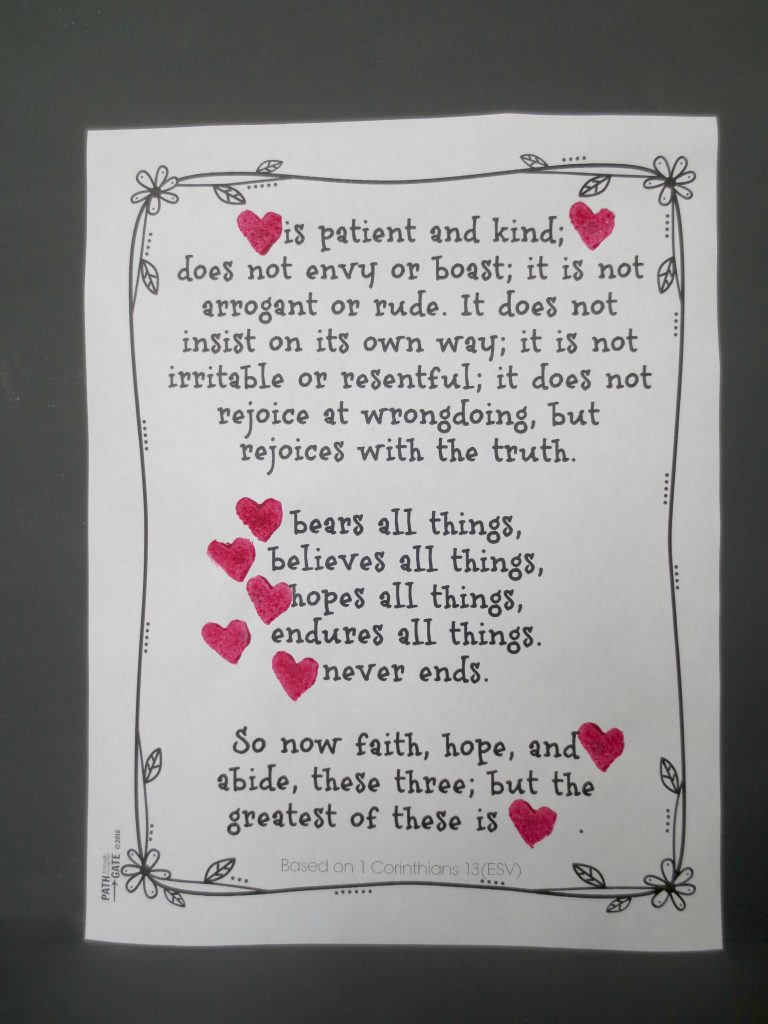 is patient and kind;
does not envy or boast; it is not
arrogant or rude. It does not
insist on its own way; it is not
irritable or resentful; it does not
rejoice at wrongdoing, but
rejoices with the truth.
bears all things,
believes all things,
hopes all things,
endures all things.
never ends.
So now faith, hope, and
abide, these three; but the
greatest of these is .
Based on 1 Corinthians 13(ESV)
PATH through the narrow
GATE ©2016